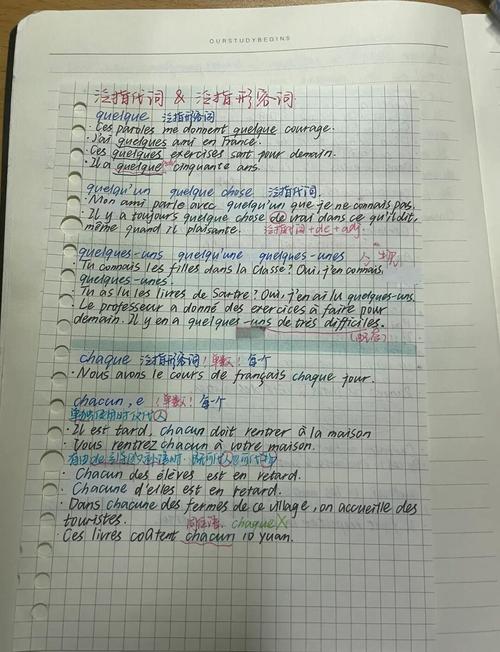 OURSTUDYBEGINS
泛指代词 & 泛指形容词
quelque 泛指形容词
· Ces paroles me donnent quelque courage.
· J'ai quelques ami en France.
· Ces quelques exercises sont pour demain.
· Il a quelque cinquante ans.
quelqu'un quelque chose 泛指代词.
· Mon ami parle avec quelqu'un que je ne connais pas.
· Il y a toujours quelque chose de vrai dans ce qu'il dit,
même quand il plaisante. 泛指代词+de+adj.
quelques-uns quelqu'une quelques-unes
· Tu connais les filles dans la classe? Oui, j'en connais
quelques-unes.
· Tu as lu les livres de Sartre? Oui, j'en ai lu quelques-uns.
· Le professeur a donné des exercices à faire pour
demain. Il y en a quelques-uns de très difficiles.
chaque 泛指形容词! 单数! 每个
· Nous avons le cours de français chaque jour.
chacun, e (单数! 每个
单独使用时仅代人
· Il est tard, chacun doit rentrer à la maison
· Vous rentrez chacun à votre maison.
· Chacun des élèves est en retard.
· Chacune d'elles est en retard.
· Dans chacune des fermes de ce village, on accueille des
touristes. 同位语, chaque X
· Ces livres coûtent chacun 10 yuan.